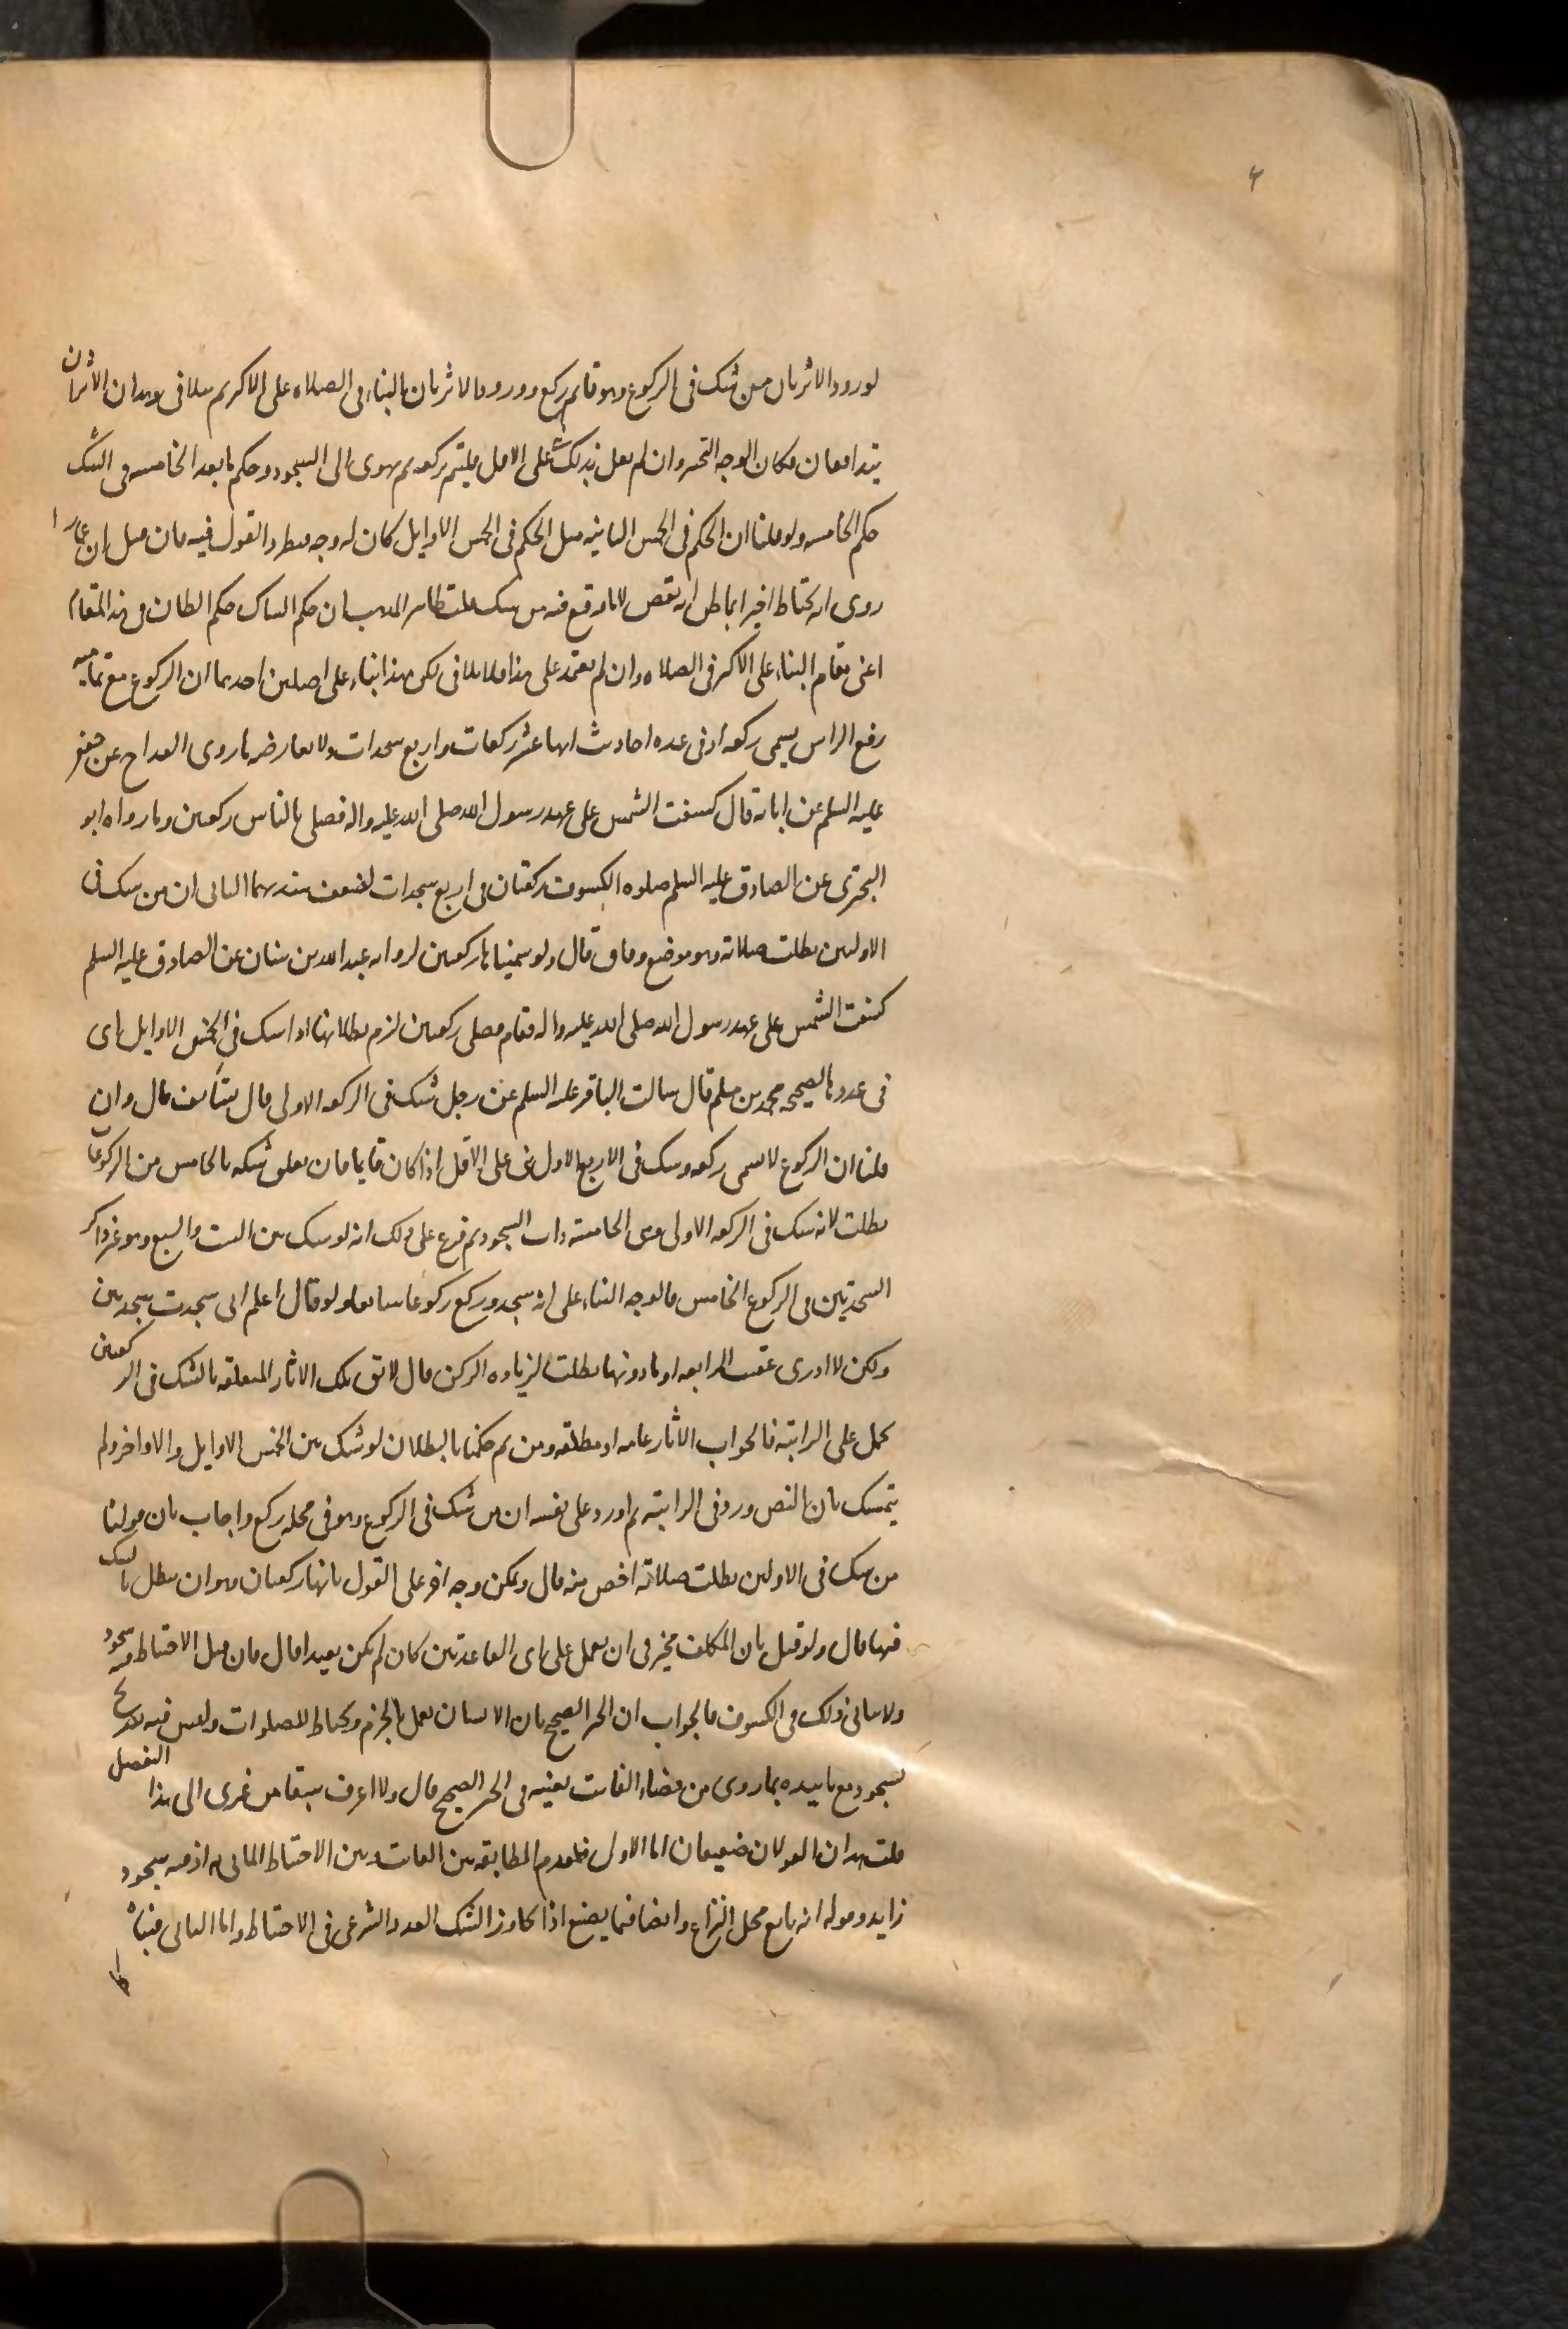 ۴
لورود الاثر بان من شك فى الركوع وهو قائم ركع وورود الاثر بان البناء فى الصلاه على الاكثر ثم يتلافى وهذان الاثران
يتدافعان فكان الوجه التخير وان لم نعمل بذلك على الاقل فليتم ركعه ثم يهوى الى السجود وحكم ما بعد الخامسه فى الشك
حكم الخامسه ولو قلنا ان الحكم فى الخمس الثانيه مثل الحكم فى الخمس الاوايل كان له وجه مطرد القول فيه فان قيل ان عمارا
روى انه يحتاط اخيرا بما ظن انه نقص لا ما وقع فيه من شك قلت ظاهر المذهب ان حكم الشاك حكم الظان فى هذا المقام
اعنى مقام البناء على الاكثر فى الصلاه وان لم يعتمد على هذا فلا يتلافى لكن هذا بناء على اصلين احدهما ان الركوع مع
رفع الراس يسمى ركعه اذ فى عده احاديث انها عشر ركعات واربع سجدات ولا يعارضه ما روى القداح عن جعفر
عليه السلم عن ابائه قال كسفت الشمس على عهد رسول الله صلى الله عليه واله فصلى بالناس ركعتين وما رواه ابو
البخترى عن الصادق عليه السلم صلوه الكسوف ركعتان فى اربع سجدات لضعف سندهما الثانى ان من شك فى
الاولين بطلت صلاته وهو موضع وفاق قال ولو سميناها ركعتين لروايه عبد الله بن سنان عن الصادق عليه السلم
كسفت الشمس على عهد رسول الله صلى الله عليه واله فقام فصلى ركعتين لزم بطلانها اذا شك فى الخمس الاوايل اى
فى عددها لصحيحه محمد بن مسلم قال سالت الباقر عليه السلم عن رجل شك فى الركعه الاولى قال يستأنف قال وان
قلنا ان الركوع لا يسمى ركعه وشك فى الاربع الاول بنى على الاقل اذا كان قايما فان تعلق شكه بالخامس من الركوعات
بطلت لانه شك فى الركعه الاولى وهى الخامسه ذات السجود ثم فرع على ذلك انه لو شك بين الست والسبع وهو غير ذاكر
السجدتين فى الركوع الخامس فالوجه البناء على انه سجد وركع ركوعا سابعا ولو قال اعلم انى سجدت سجدتين
ولكن لا ادرى عقيب الرابعه او ما دونها بطلت لزياده الركن قال لا يق تلك الاثار المتعلقه بالشك فى الركعتين
تحمل على الراتبه فالجواب الاثار عامه او مطلقه ومن ثم حكمنا بالبطلان لو شك بين الخمس الاوايل والاواخر ولم
يتمسك بان النص ورد فى الراتبه ثم اورد على نفسه ان من شك فى الركوع وهو فى محله ركع واجاب بان قولنا
من شك فى الاولين بطلت صلاته اخص منه قال ويمكن وجه اخر على القول بانها ركعتان وهو ان تبطل بالشك
فيها قال ولو قيل بان المكلف يخير فى ان يعمل على اى القاعدتين كان لم يكن بعيدا قال فان قيل الاحتياط فيه سجود
ولا يتاتى ذلك فى الكسوف فالجواب ان الخبر الصحيح بان الانسان يعمل بالجزم ويحتاط للصلوات وليس فيه تقدير
لسجود مع تاييده بما روى من قضاء الفائت بعينه فى الخبر الصحيح قال ولا اعرف سبقا من غيرى الى هذا التفصيل
قلت هذان القولان ضعيفان اما الاول فلعدم المطابقه بين الفائت وبين الاحتياط الماتى به اذ فيه سجود
زايد وقوله انه تابع محل النزاع وايضا فما يصنع اذا تجاوز الشك العدد الشرعى فى الاحتياط واما الثانى فبناؤه